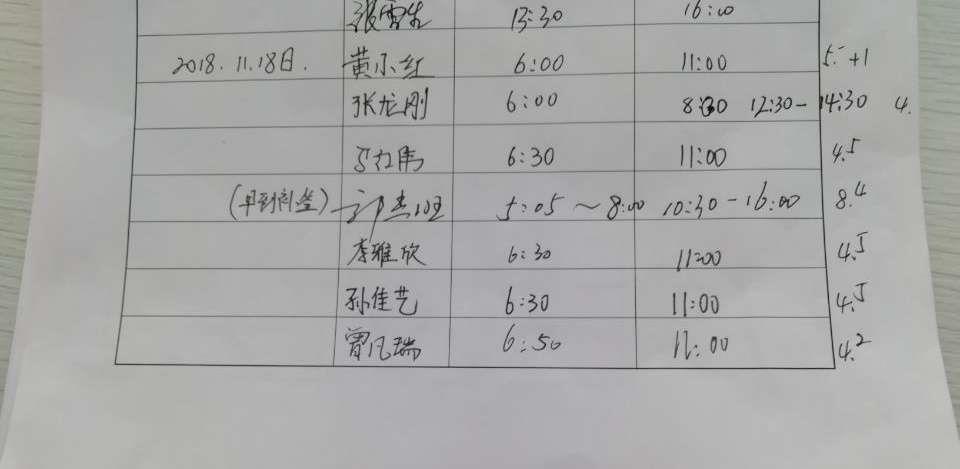 张雪生 13:30 16:00
2018.11.18日. 黄小红 6:00 11:00 5. +1
张龙刚 6:00 8:30 12:30-14:30 4.
红伟 6:30 11:00 4.5
(早到 ) 5:05 ~ 8:00 10:30-16:00 8.4
李雅欣 6:30 11:00 4.5
孙佳艺 6:30 11:00 4.5
曾凡瑞 6:50 11:00 4.2